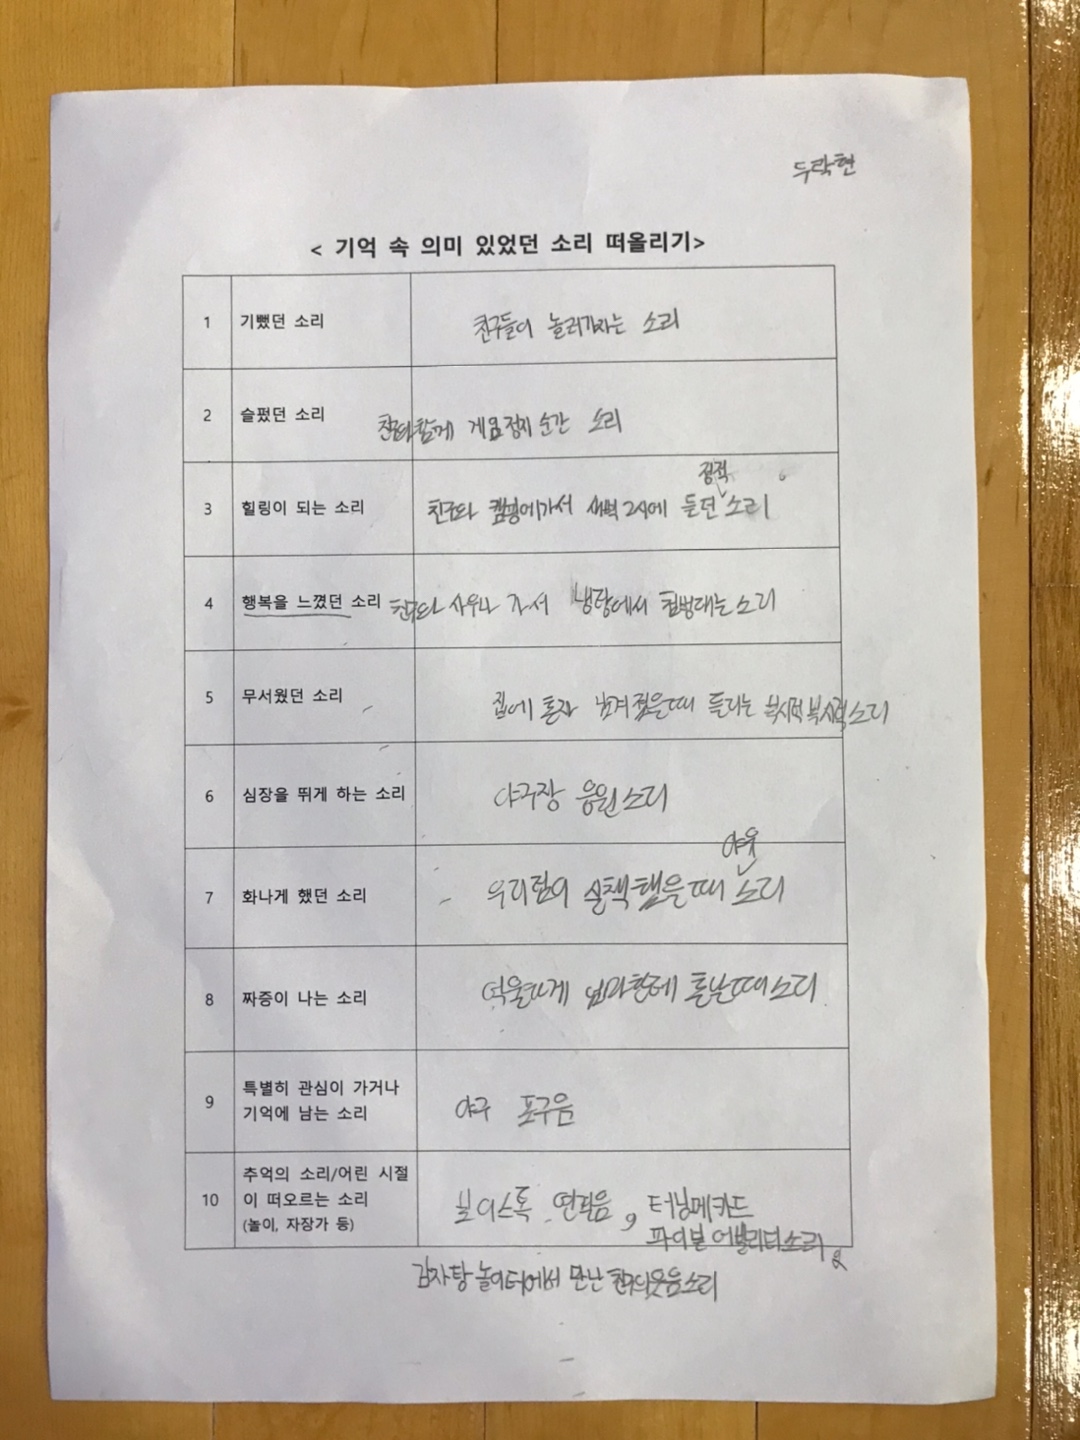 두락현
< 기억 속 의미 있었던 소리 떠올리기>
1 기뻤던 소리 친구들이 놀러가자는 소리
2 슬펐던 소리 친구와함께 게임 순간 소리
3 힐링이 되는 소리 친구와 캠핑에가서 새벽 2시에 듣던 정적 소리
4 행복을 느꼈던 소리 친구와 사우나 가서 냉탕에서 첨벙대는소리
5 무서웠던 소리 집에 혼자 남겨졌을때 들리는 부시럭부시럭소리
6 심장을 뛰게 하는 소리 야구장 응원소리
7 화나게 했던 소리 우리팀이 실책했을때 야유 소리
8 짜증이 나는 소리 억울하게 혼날때소리
9 특별히 관심이 가거나
기억에 남는 소리 야구 포구음
10 추억의 소리/어린 시절
이 떠오르는 소리
(놀이, 자장가 등)
보이스톡 연결음, 터닝메카드
어빌리티소리
감자탕 놀이터에서 만난 친구의웃음소리